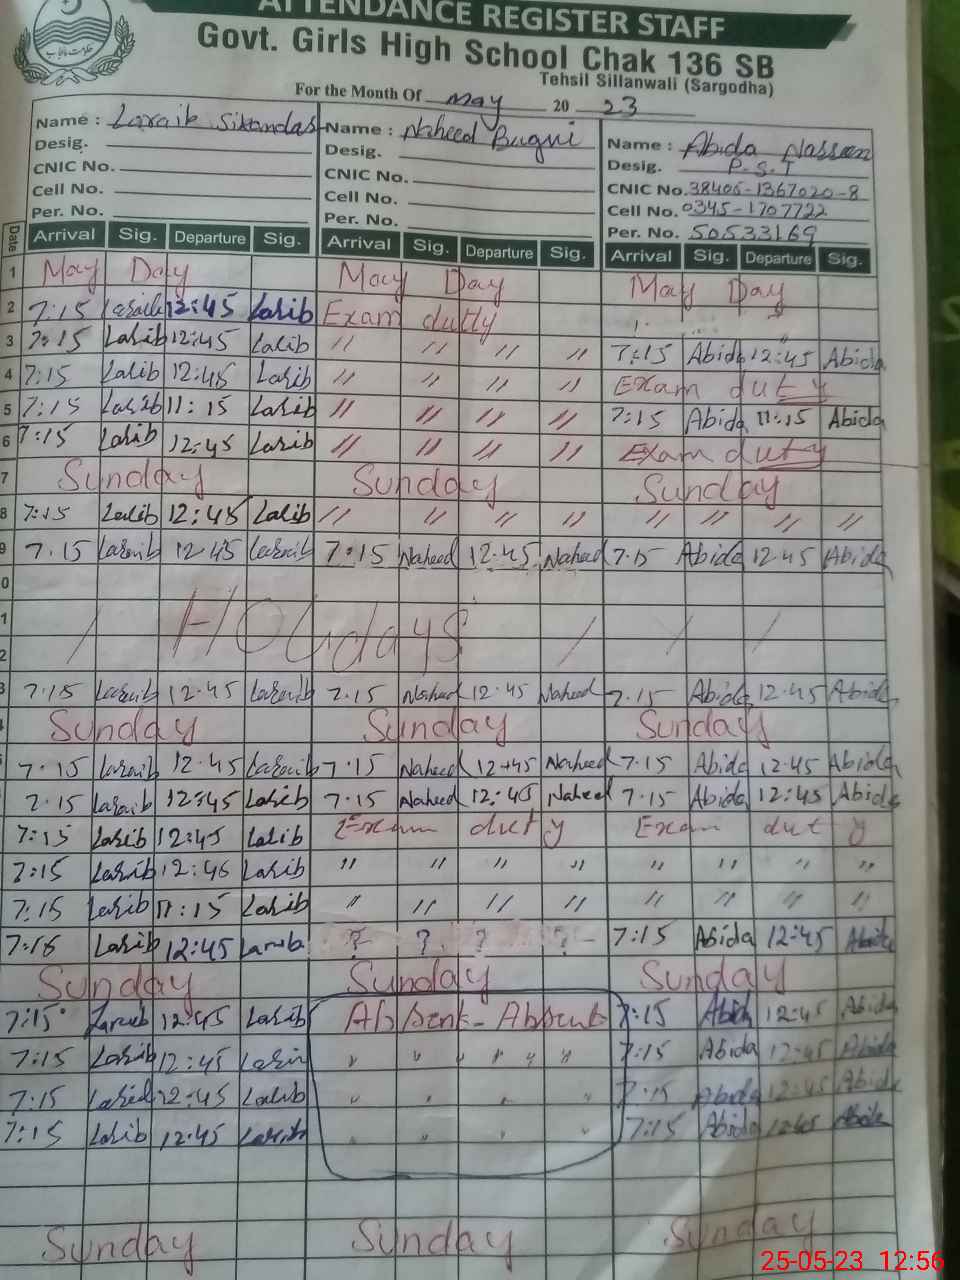 ATTENDANCE REGISTER STAFF
Govt. Girls High School Chak 136 SB
Tehsil Sillanwali (Sargodha)
For the Month Of May 20 23
Name : Laraib Sikandas Name : Naheed Name : Abida Nasseen
Desig. Desig. Desig. P.S.T
CNIC No. CNIC No. CNIC No. 38405-1367020-8
Cell No. Cell No. Cell No. 0345-1707722
Per. No. Per. No. Per. No. 50533169
Date Arrival Sig. Departure Sig. Arrival Sig. Departure Sig. Arrival Sig. Departure Sig.
1 May Day May Day May Day
2 7:15 Laraib 12:45 Larib Exam duty
3 7:15 Larib 12:45 Larib " " " " 7:15 Abida 12:45 Abida
4 7:15 Larib 12:45 Larib " " " " Exam duty
5 7:15 Larib 11:15 Larib " " " " 7:15 Abida 11:15 Abida
6 7:15 Larib 12:45 Larib " " " " Exam duty
7 Sunday Sunday Sunday
8 7:15 Larib 12:45 Larib " " " " " " " "
9 7.15 Laraib 12.45 Laraib 7:15 Naheed 12.45 Naheed 7.15 Abida 12.45 Abida
0
1 / Holidays / / /
2
3 7.15 Laraib 12.45 Laraib 7.15 Naheed 12.45 Naheed 7.15 Abida 12.45 Abida
Sunday Sunday Sunday
7.15 Laraib 12.45 Laraib 7.15 Naheed 12.45 Naheed 7.15 Abida 12.45 Abida
7.15 Laraib 12:45 Larib 7.15 Naheed 12:45 Naheed 7.15 Abida 12:45 Abida
7:15 Larib 12:45 Larib Exam duty Exam duty
7:15 Larib 12:45 Larib " " " " " " " "
7:15 Larib 11:15 Larib " " " " " " " "
7:15 Larib 12:45 Laraib ? ? ? ? 7:15 Abida 12:45 Abida
Sunday Sunday Sunday
7:15 Laraib 12:45 Larib Absent - Absent 7:15 Abida 12:45 Abida
7:15 Larib 12:45 Larib " " " " " " 7:15 Abida 12:45 Abida
7:15 Larib 12:45 Larib " " " " 7:15 Abida 12:45 Abida
7:15 Larib 12:45 Larib " " " " 7:15 Abida 12:45 Abida
Sunday Sunday Sunday
25-05-23 12:56